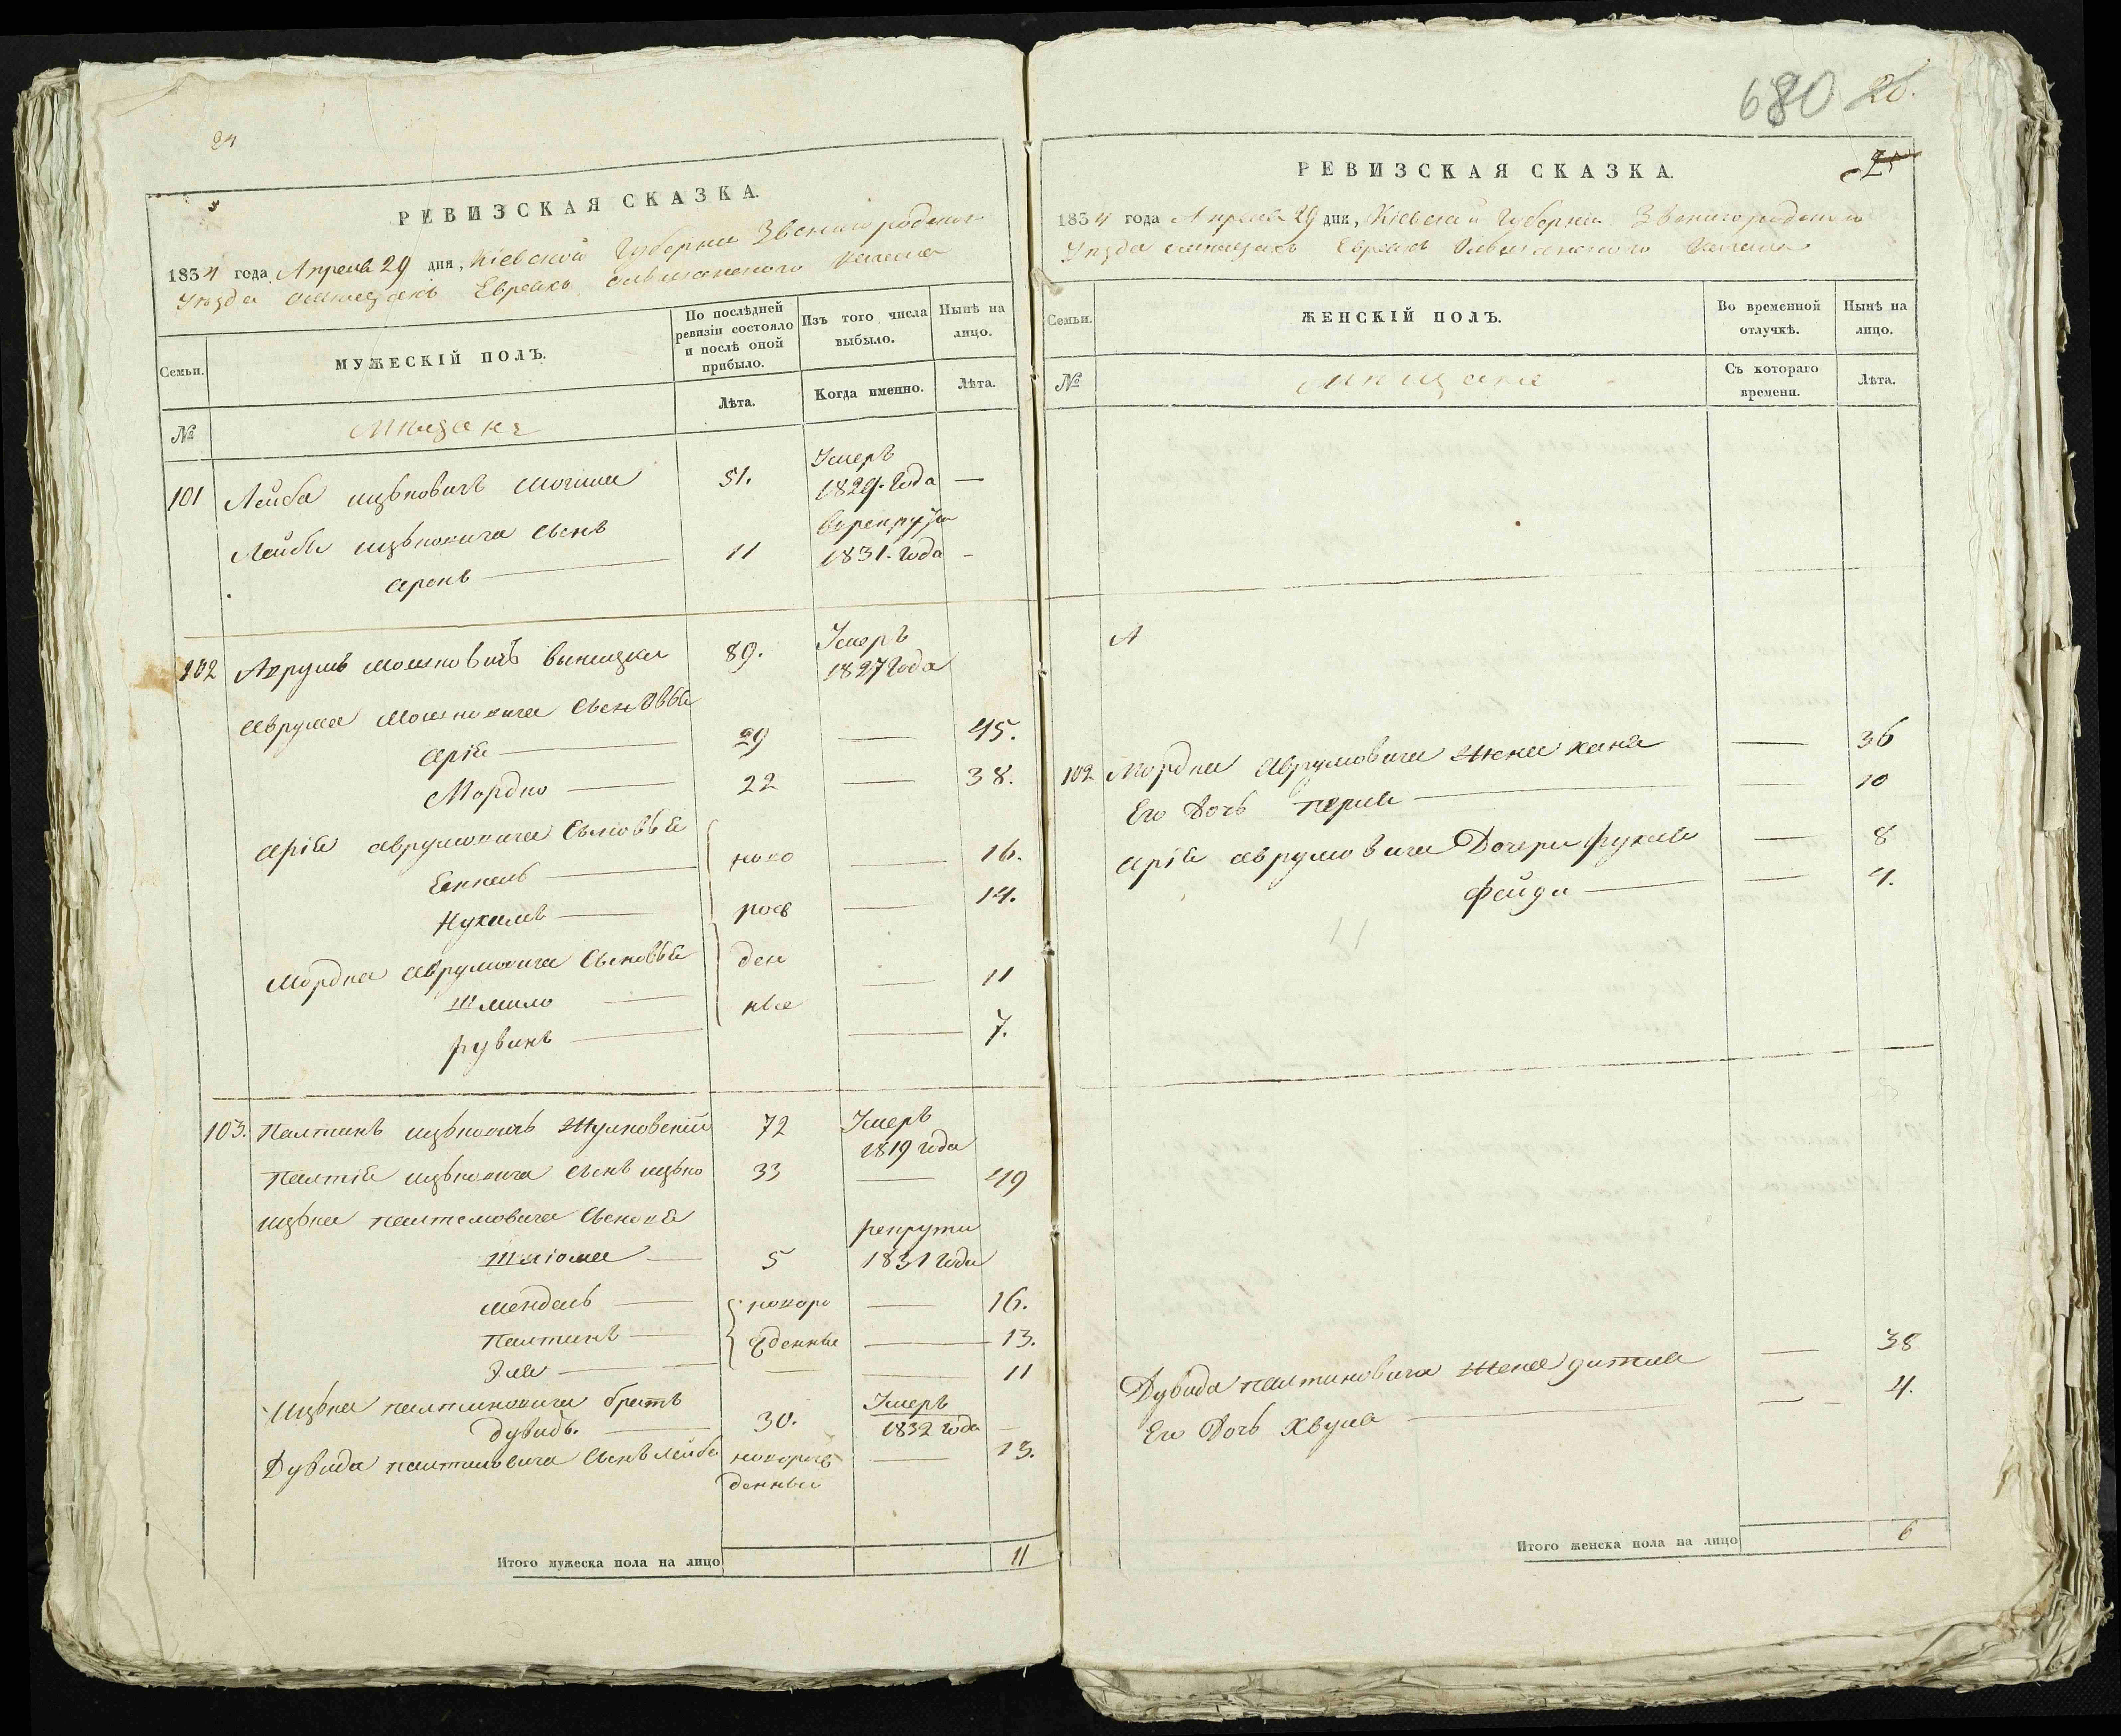 24
РЕВИЗСКАЯ СКАЗКА.
1834 года Апреля 29 дня, Кіевской Губерніи Звенигородского
Уезда Евреяхъ
Семьи.
МУЖЕСКІЙ ПОЛЪ.
По послѣдней ревизіи состояло и послѣ оной прибыло.
Изъ того числа выбыло.
Нынѣ на лицо.
№
Лѣта.
Когда именно.
Лѣта.
Мещане
101 Лейба ицковичъ 51. Умеръ 1829. Года —
Лейбы ицковича Сынъ
Аронъ — 11 1831. Года -
102 Аврумъ Мошковичъ 89. Умеръ 1827 Года
Аврума Мошковича Сыновья
Арія — 29 — 45.
Мордко — 22 — 38.
Арія Аврумовича Сыновья
ново — 16.
Нухимъ — рож — 14.
Мордка Аврумовича Сыновья ден
Шмило — — 11
ные
Рувинъ — — 7.
103. Палтинъ ицковичъ 72 Умеръ 1819 года
ицковича Сынъ ицко 33 — 49
ицка Сыновья
5 рекруты 1831 Года
Мендель — новоро — 16.
Палтинъ — жденные — 13.
Эля — — — 11
Ицка палтиновича братъ
Дувидъ. — 30. Умеръ 1832 года
Дувида палтиновича Сынъ Лейба новорож — 13.
денный
Итого мужеска пола на лицо 11
680 26.
25
РЕВИЗСКАЯ СКАЗКА.
1834 года Апреля 29 дня, Кіевской Губерніи Звенигородского
Уезда Евреяхъ
Семьи.
ЖЕНСКІЙ ПОЛЪ.
Во временной отлучкѣ.
Нынѣ на лицо.
№
Съ котораго времени.
Лѣта.
Мещане
102 Мордка Аврумовича Жена хана — 36
Его Дочь перля — — 10
Арія Аврумовича Дочери рухля — 8
Фейга — — 4.
Дувида палтиновича Жена гитля — 38
Его Дочь — — 4.
Итого женска пола на лицо 6